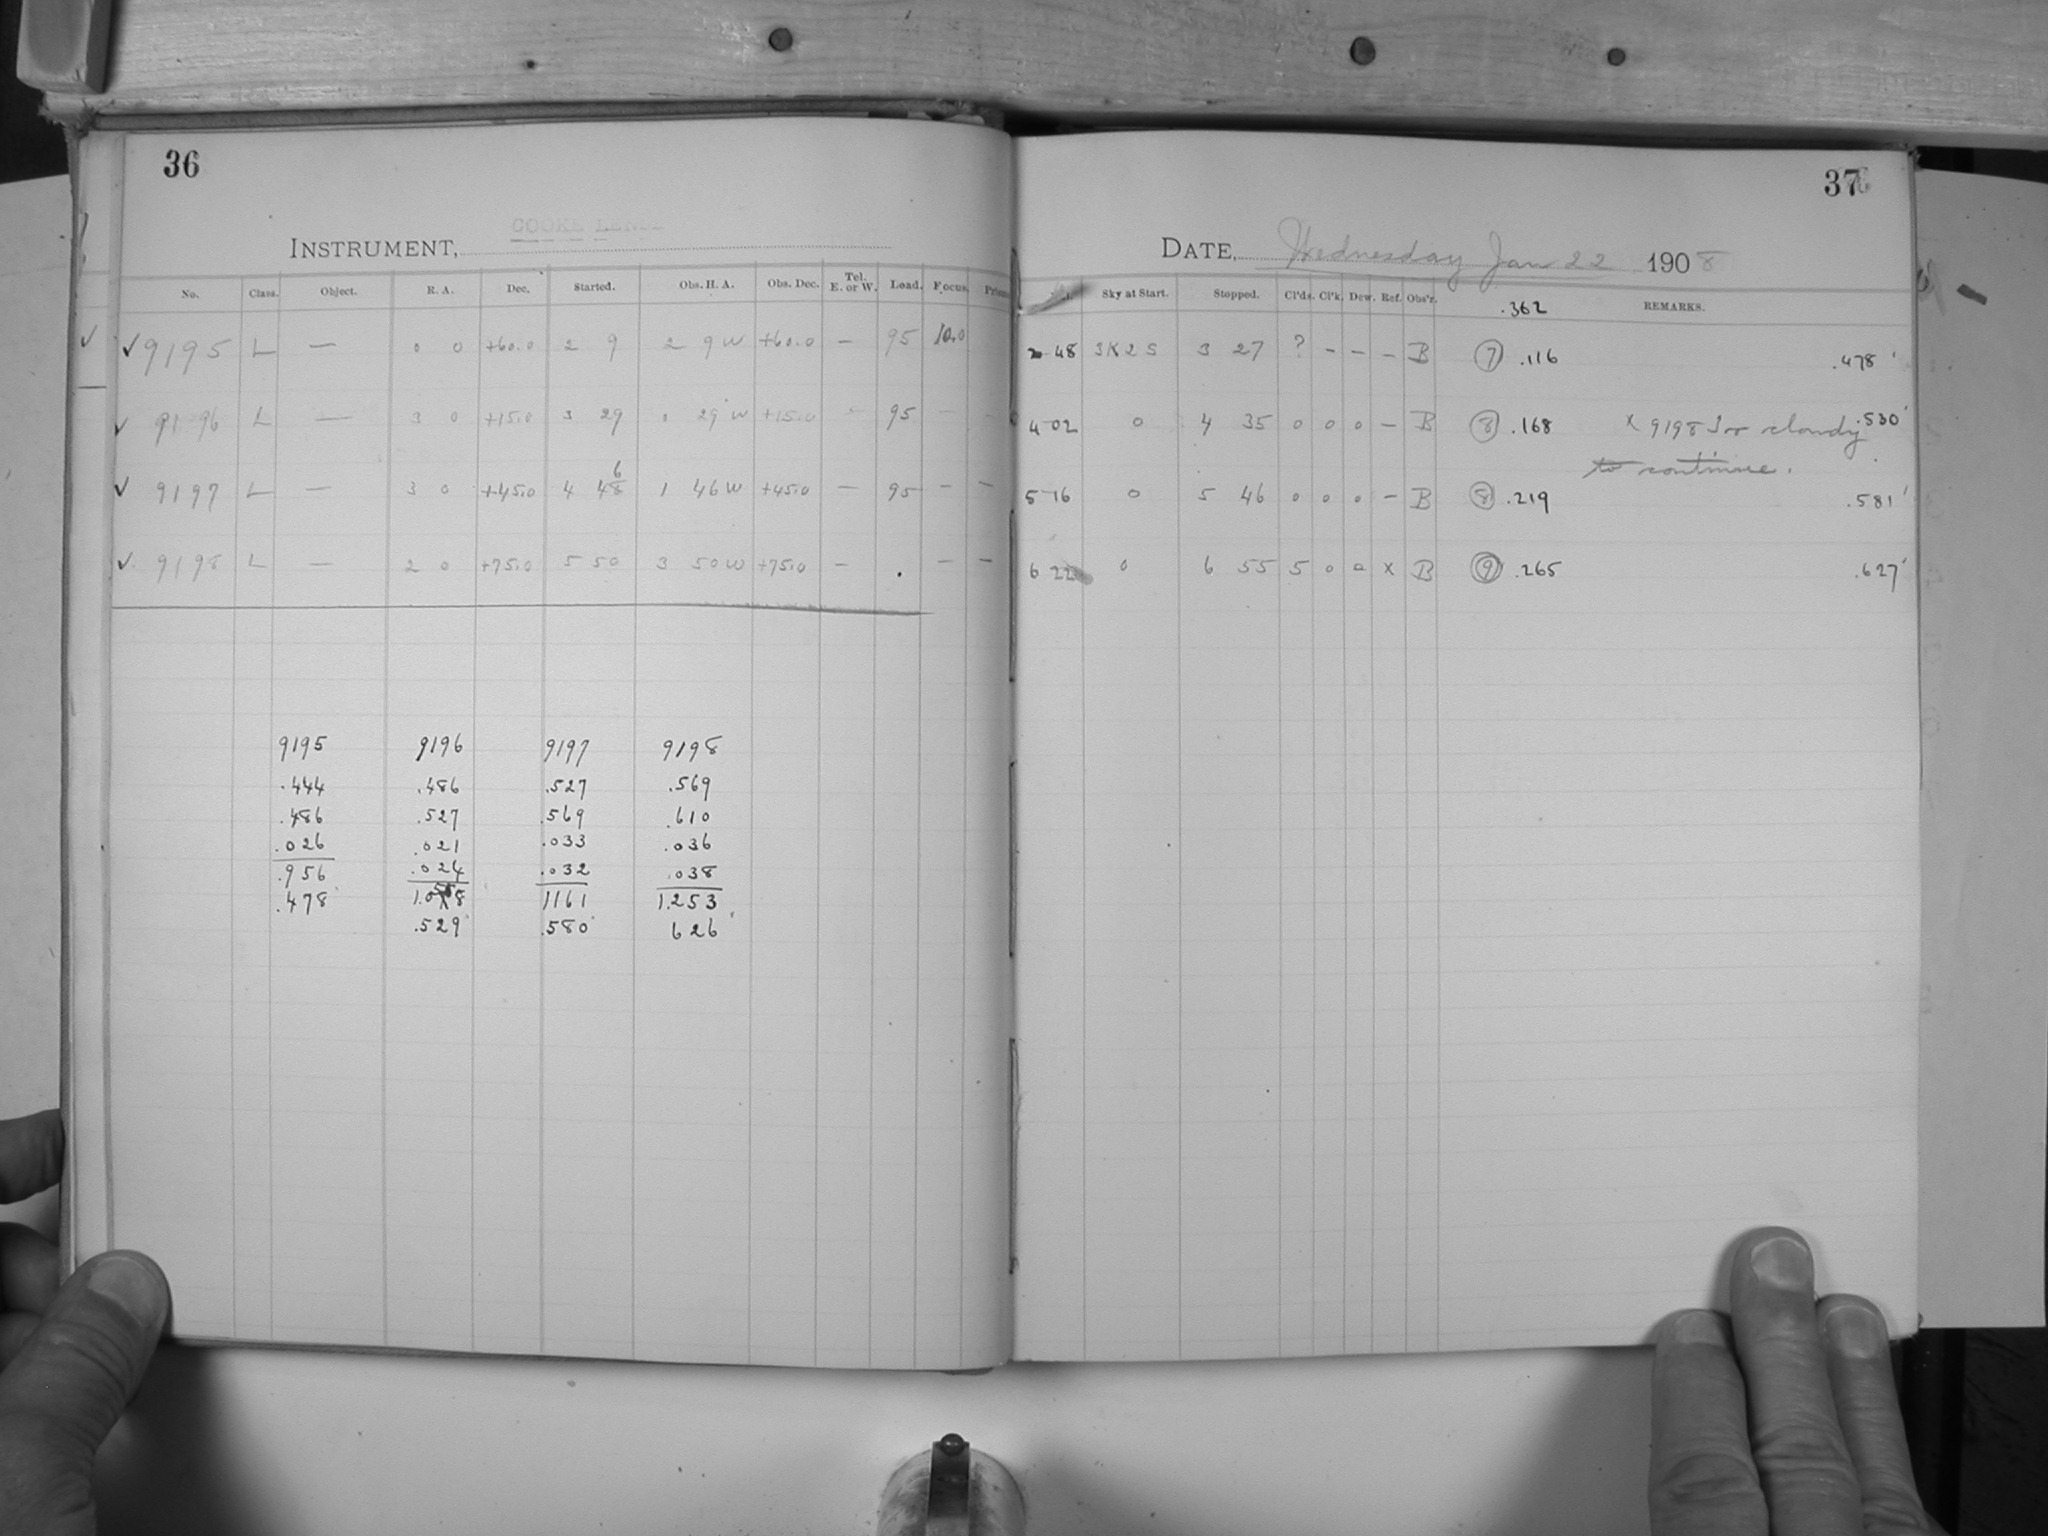 36
COOKE LENS
INSTRUMENT,
No. Class. Object. R. A. Dec. Started. Obs. H. A. Obs. Dec. Tel. E. or W. Load. Focus.
✓ ✓ 9195 L — 0 0 +60.0 2 9 2 9 W +60.0 — 95 10.0
✓ 9196 L — 3 0 +15.0 3 29 0 29 W +15.0 - 95 — —
✓ 9197 L — 3 0 +45.0 4 48 6 1 46 W +45.0 — 95 — —
✓ 9198 L — 2 0 +75.0 5 50 3 50 W +75.0 — . — —
9195 9196 9197 9198
.444 .486 .527 .569
.486 .527 .569 .610
.026 .021 .033 .036
.956 .024 .032 .038
.478 1.058 1161 1.253
.529 .580 626
37
DATE, Wednesday Jan 22 1908
Sky at Start. Stopped. Cl'ds. Cl'k. Dew. Ref. Obs'r. .362 REMARKS.
2 48 3K2S 3 27 ? - - - B 7 .116 .478
4 02 0 4 35 0 0 0 - B 8 .168 x 9198 Too cloudy .530
to continue.
5 16 0 5 46 0 0 0 - B 8 .219 .581
6 22 0 6 55 5 0 0 x B 9 .265 .627